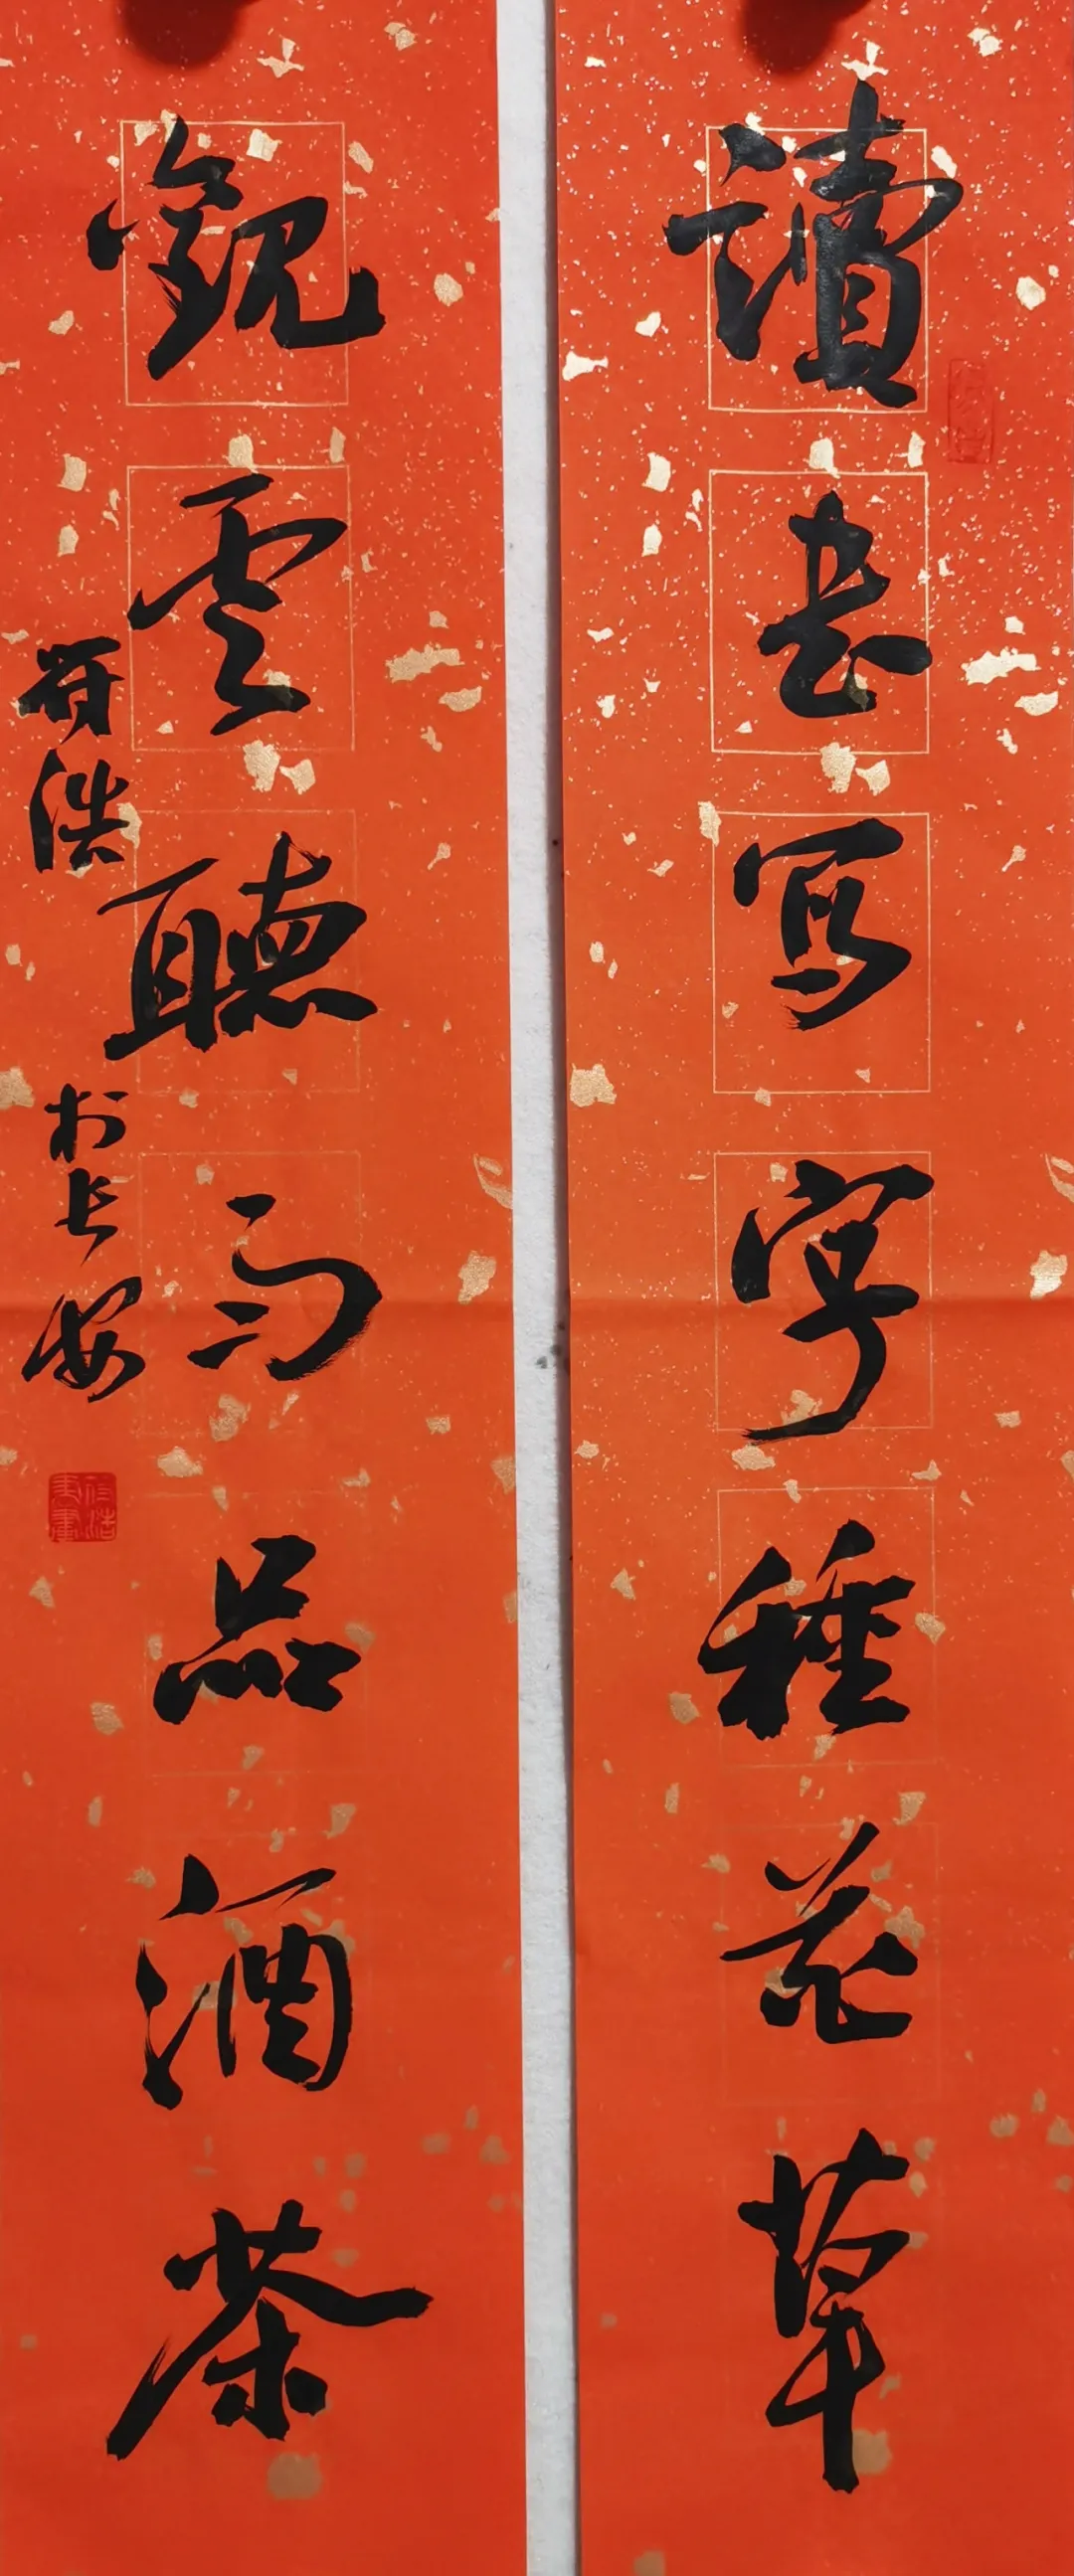 讀書寫字種花草
觀雲聽雨品酒茶
符浩於長安